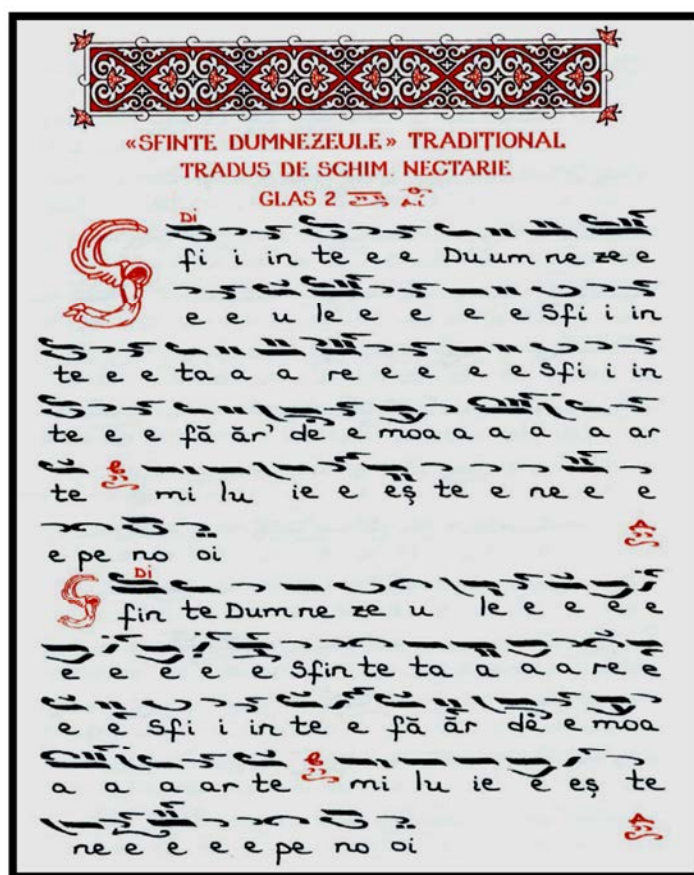 «SFINTE DUMNEZEULE» TRADIȚIONAL
TRADUS DE SCHIM. NECTARIE
GLAS 2
Di
S fi i in te e e Du um ne ze e
e e u le e e e e Sfi i in
te e e ta a a re e e e e Sfi i in
te e e fă ăr' de e moa a a a a ar
te mi lu ie e eș te e ne e e
e pe no oi
Di
S fin te Dum ne ze u le e e e e
e e e e e Sfin te ta a a a re e
e e Sfi i in te e fă ăr de e moa
a a a ar te mi lu ie e eș te
ne e e e e pe no oi